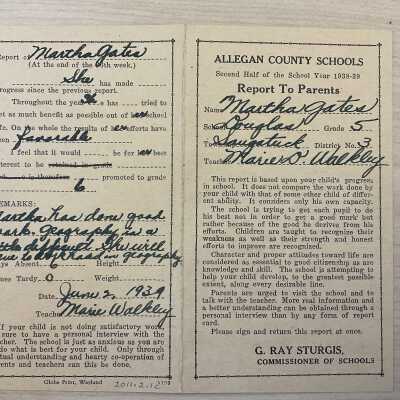 Report of Martha Gates
(At the end of the th week.)
She has made
progress since the previous report.
Throughout the year She has tried to
get as much benefit as possible out of her school
On the whole the results of her efforts have
favorable
I feel that it would be for her best
interest to be retained in grade
is therefore promoted to grade
6
REMARKS:
Martha has done good
work. Geography is a
little difficult. She will
have to work hard in geography
Days Absent Height
Times Tardy 0 Weight
Date June 2, 1939
Teacher Marie Walkley
If your child is not doing satisfactory work
be sure to have a personal interview with the
teacher. The school is just as anxious as you are
to do what is best for your child. Only through
mutual understanding and hearty co-operation of
parents and teachers can this be done.
Globe Print, Wayland
2011.2.12
ALLEGAN COUNTY SCHOOLS
Second Half of the School Year 1938-39
Report To Parents
Name Martha Gates
School Douglas Grade 5
Saugatuck District No. 3
Teacher Marie D. Walkley
This report is based upon your child's progress
in school. It does not compare the work done by
your child with that of some other child of differ-
ent ability. It considers only his own capacity.
The school is trying to get each pupil to do
his best not in order to get a good mark but
rather because of the good he derives from his
efforts. Children are taught to recognize their
weakness as well as their strength and honest
efforts to improve are recognized.
Character and proper attitudes toward life are
considered as essential to good citizenship as are
knowledge and skill. The school is attempting to
help your child develop, to the greatest possible
extent, along every desirable line.
Parents are urged to visit the school and to
talk with the teacher. More real information and
a better understanding can be obtained through a
personal interview than by any form of report
card.
Please sign and return this report at once.
G. RAY STURGIS,
COMMISSIONER OF SCHOOLS